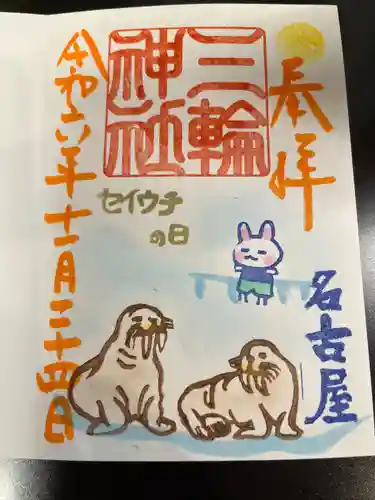 奉拝
三輪
神社
セイウチ
の日
名古屋
令和六年十一月二十四日